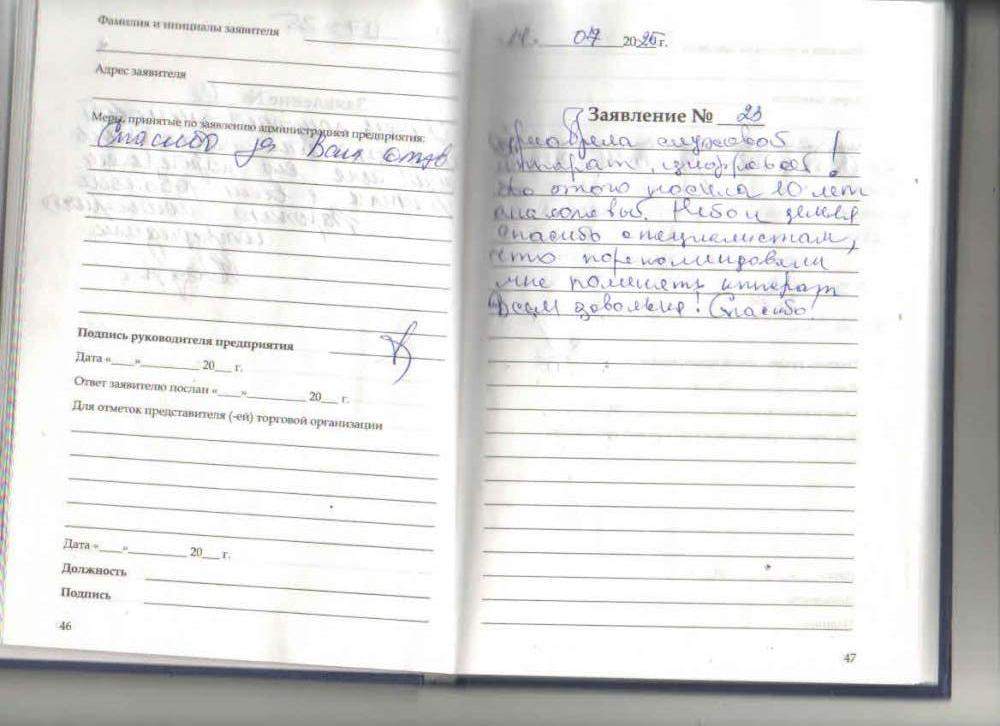 Фамилия и инициалы заявителя
Адрес заявителя
Меры, принятые по заявлению администрацией предприятия:
Спасибо за Ваш отзыв
Подпись руководителя предприятия
Дата «____»__________ 20___ г.
Ответ заявителю послан «____»__________ 20___ г.
Для отметок представителя (-ей) торговой организации
Дата «____»__________ 20___ г.
Должность
Подпись
46
07 2025 г.
Заявление № 23
Приобрела слуховой
аппарат, цифровой!
До этого носила 10 лет
аналоговый. Небо и земля
спасибо специалистам,
что порекомендовали
мне поменять аппарат
Всем довольна! Спасибо!
47